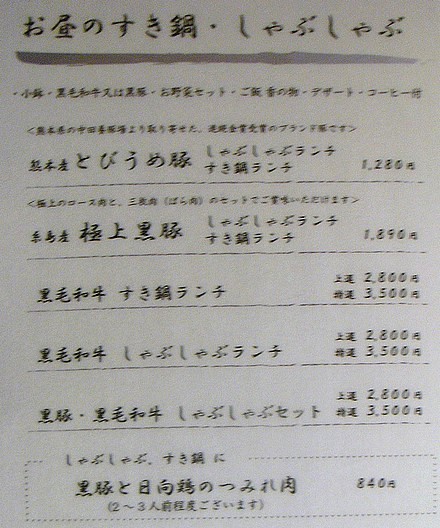 お昼のすき鍋・しゃぶしゃぶ
・小鉢・黒毛和牛又は黒豚・お野菜セット・ご飯 香の物・デザート・コーヒー付
<熊本県の中田養豚場より取り寄せた、連続金賞受賞のブランド豚です>
熊本産 とびうめ豚 しゃぶしゃぶランチ
すき鍋ランチ 1,280円
<極上のロース肉と、三枚肉(ばら肉)のセットでご賞味いただけます>
糸島産 極上黒豚 しゃぶしゃぶランチ
すき鍋ランチ 1,890円
黒毛和牛 すき鍋ランチ 上選 2,800円
特選 3,500円
黒毛和牛 しゃぶしゃぶランチ 上選 2,800円
特選 3,500円
黒豚・黒毛和牛 しゃぶしゃぶセット 上選 2,800円
特選 3,500円
しゃぶしゃぶ、すき鍋 に
黒豚と日向鶏のつみれ肉 840円
(2〜3人前程度ございます)